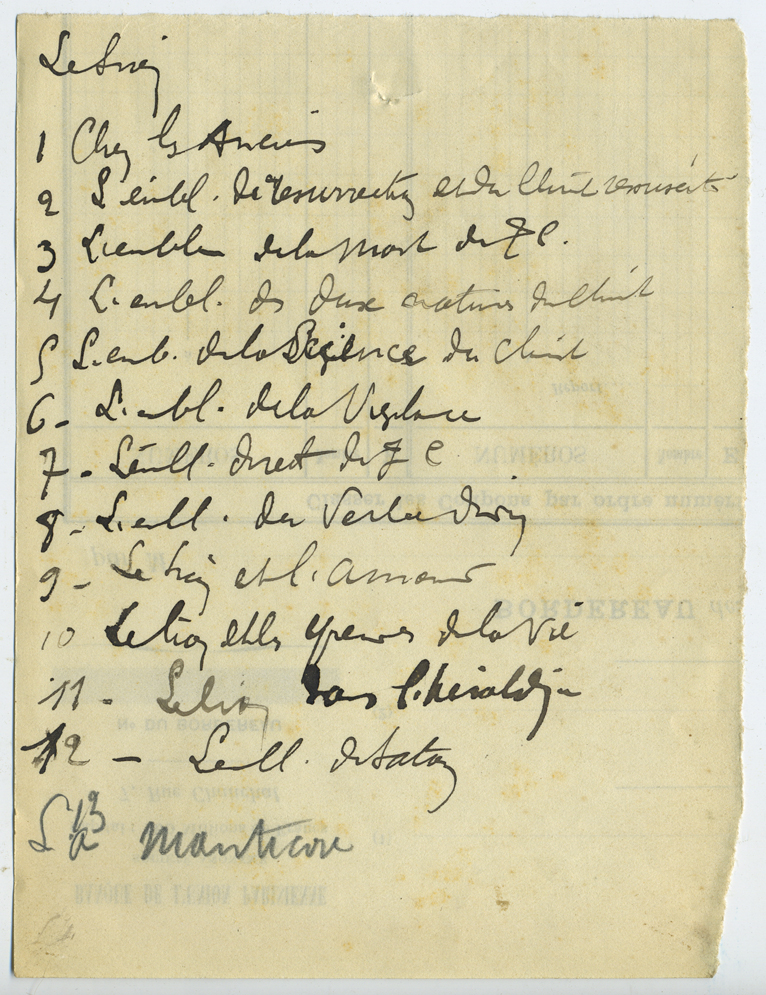 Le Lion
1 Chez les Anciens
2 L'embl. de resurrection et du Christ ressuscité
3 L'emblem de la Mort de J C.
4 L'embl. des deux natures du Christ
5 L'emb. de la Science du Christ
6 - L'embl. de la Vigilance
7 - L'embl. direct de J C
8 - L'embl. du Verbe divin
9 - Le lion et l'Amour
10 Le lion et les epreuves de la Vie
11 - Le lion dans l'héraldique
12 - L'embl. de Satan
13 La Manticore